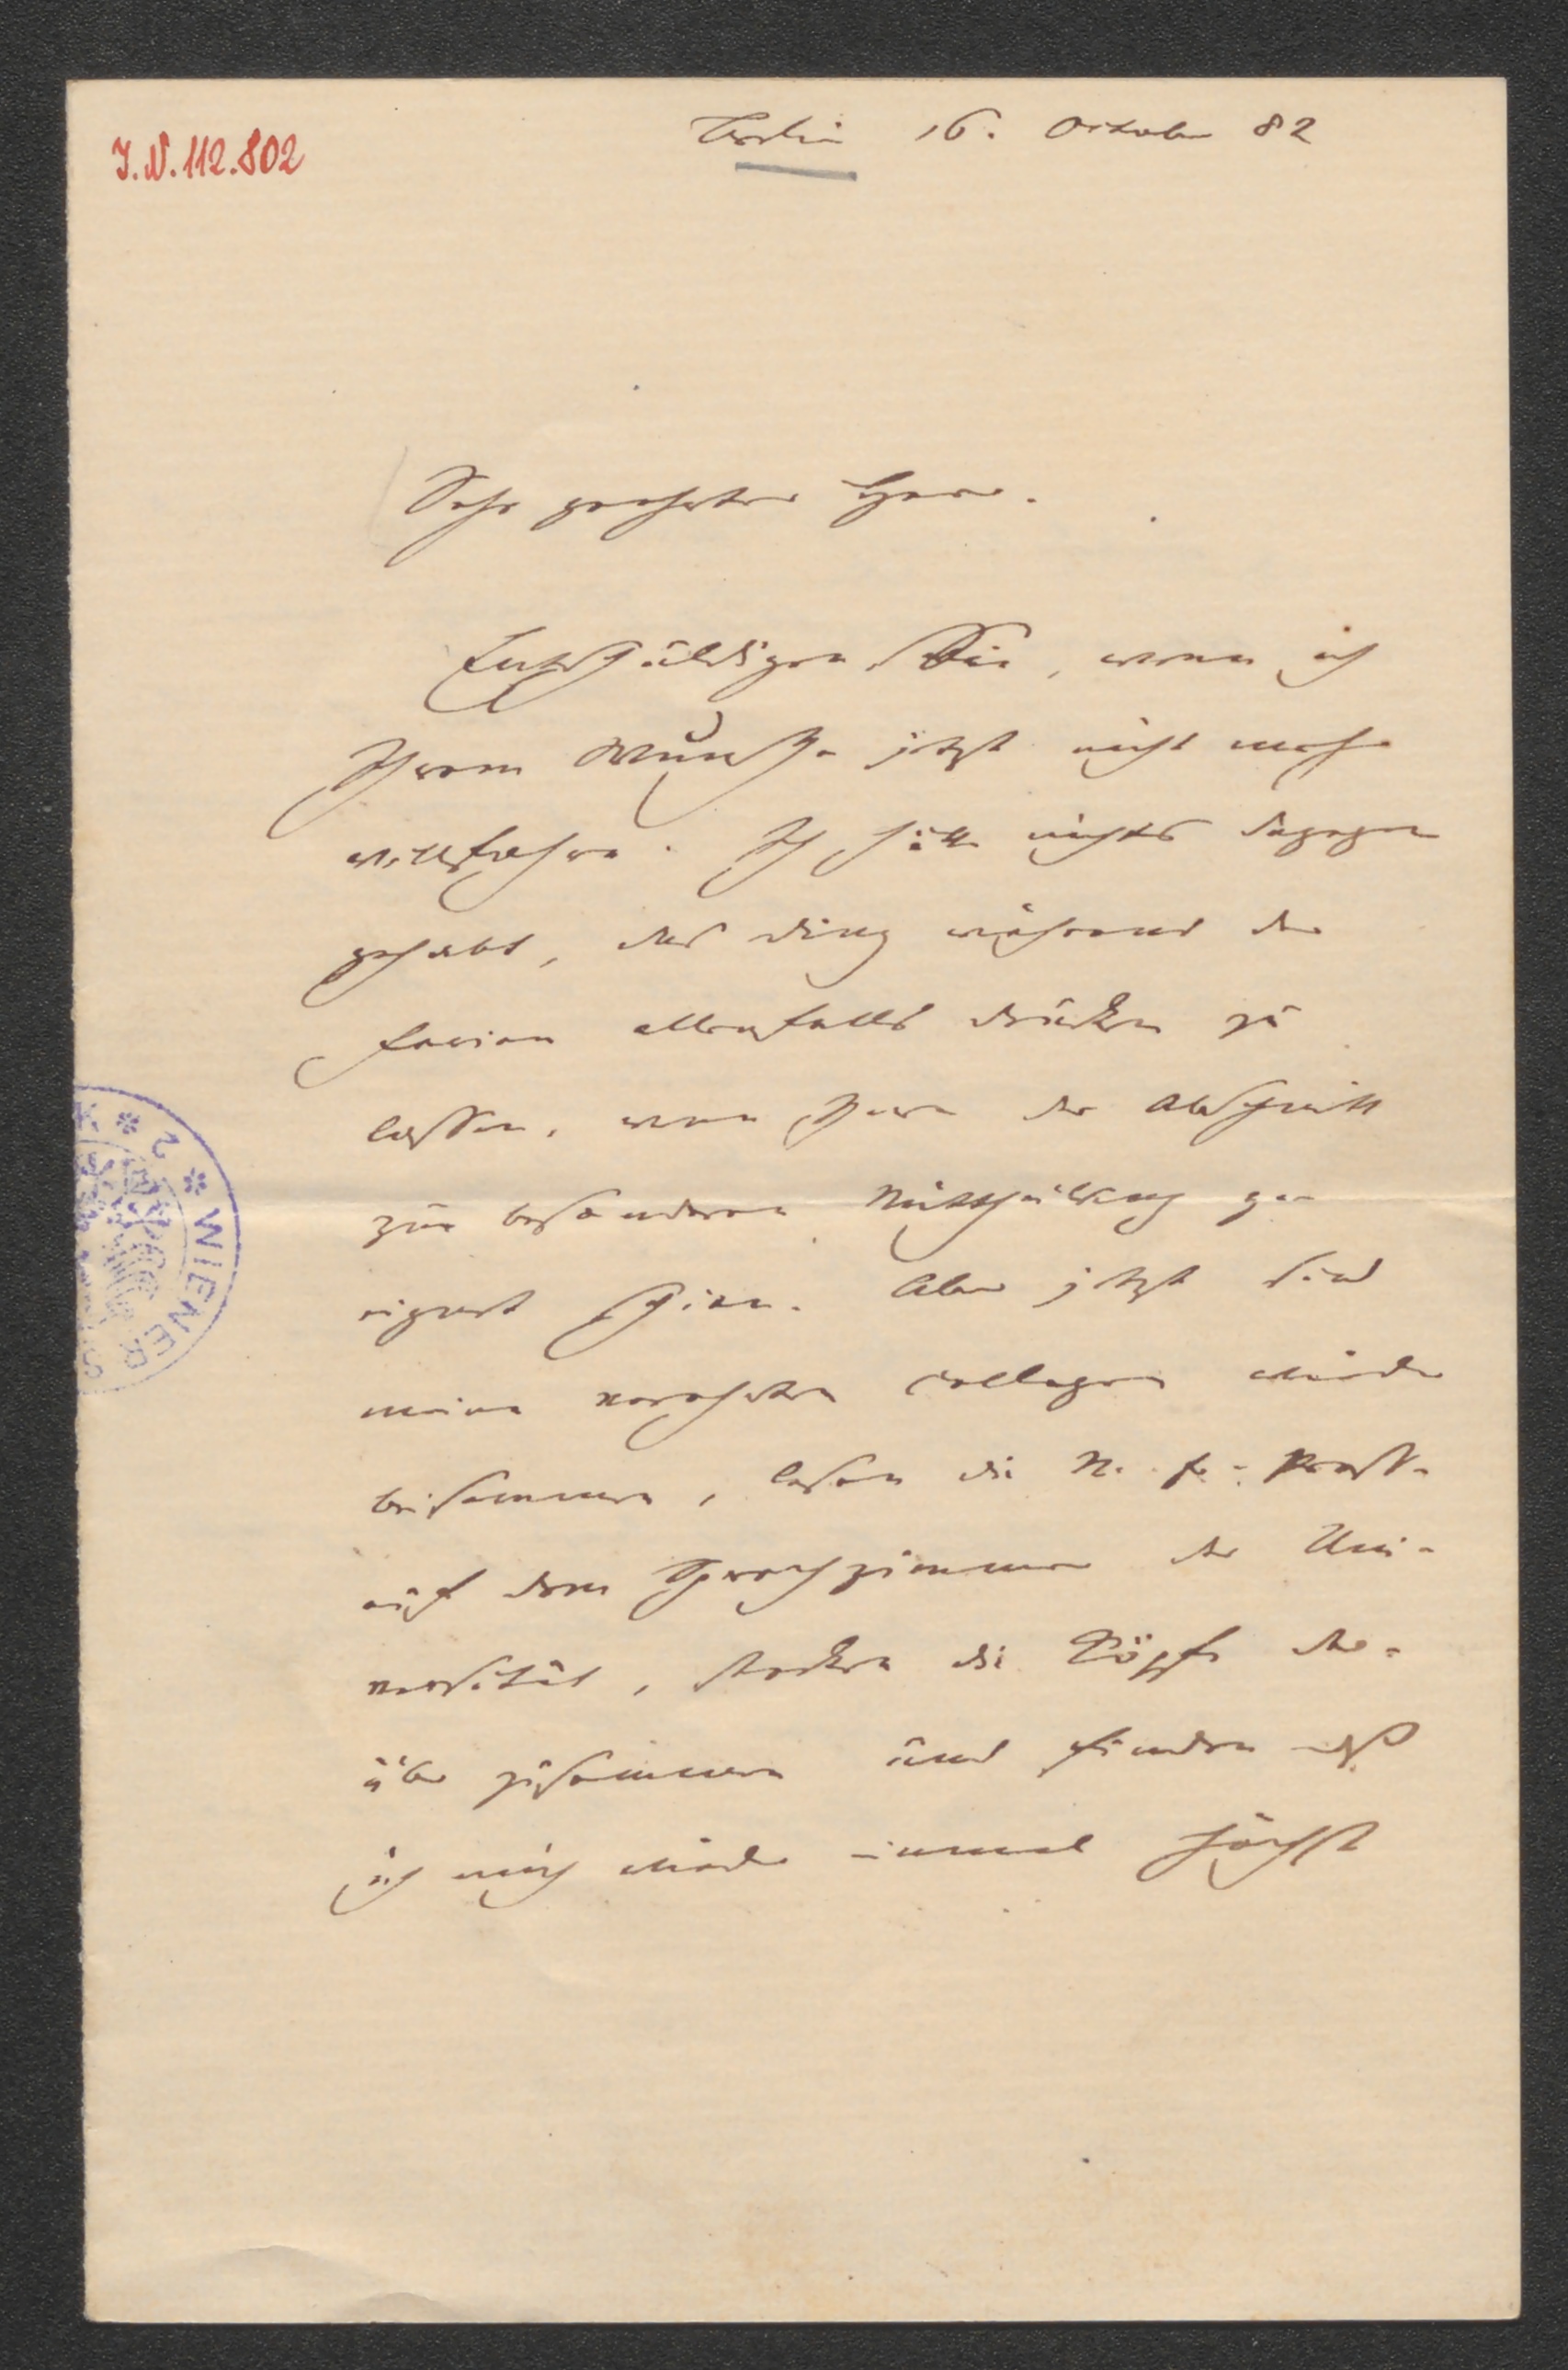 J.N. 112.802
Berlin 16. October 82
Sehr geehrter Herr.
Entschuldigen Sie, wenn ich
Ihrem Wunsche jetzt nicht mehr
willfahre. Ich hätte nichts dagegen
gehabt, das Ding während der
Ferien allenfalls drucken zu
lassen, wenn Ihnen der Abschnitt
zur besonderen Mittheilung ge-
eignet schien. Aber jetzt sind
meine verehrten Collegen wieder
beisammen, lesen die N. fr. Presse
auf dem Sprechzimmer der Uni-
versität, stecken die Köpfe dar-
über zusammen und finden daß
ich mich wieder einmal höchst
WIENER